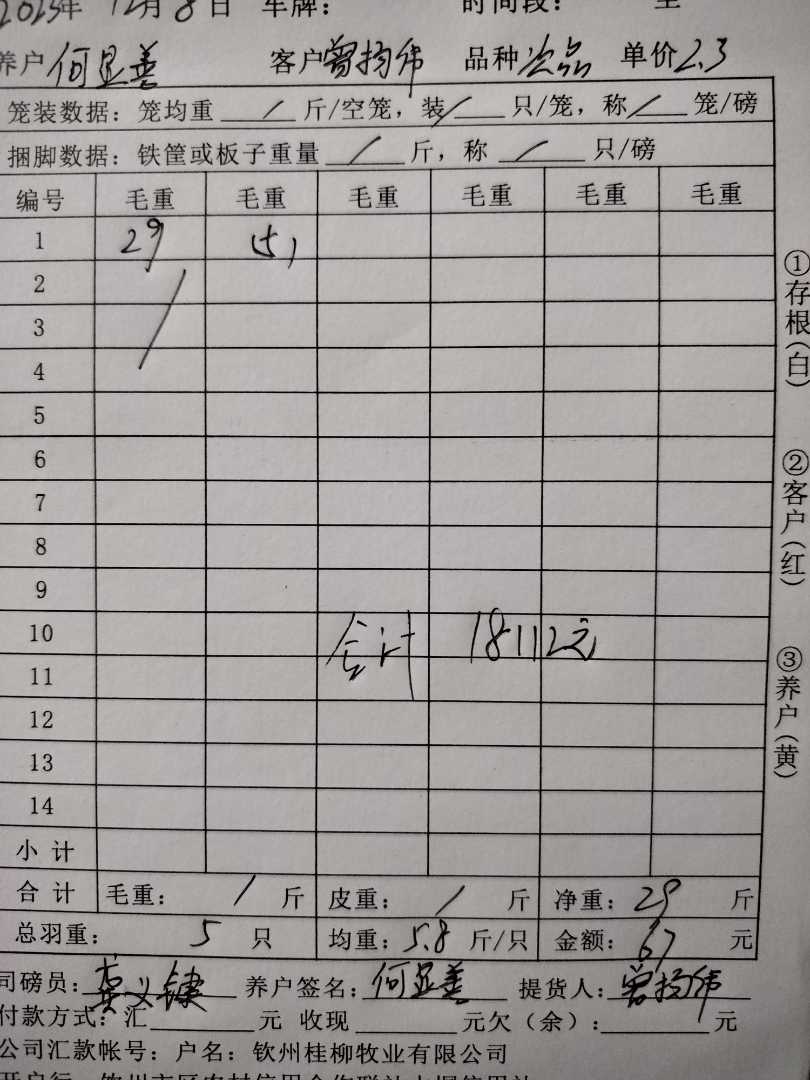 2023年 12月 8日 车牌： 时间段： 至
养户 何显善 客户 曾扬伟 品种 次品 单价 2.3
笼装数据：笼均重 / 斤/空笼，装 / 只/笼，称 / 笼/磅
捆脚数据：铁筐或板子重量 / 斤，称 / 只/磅
编号 毛重 毛重 毛重 毛重 毛重 毛重
1 29 (5)
2
3
4
5
6
7
8
9
10 合计 18112元
11
12
13
14
小计
合计 毛重： / 斤 皮重： / 斤 净重： 29 斤
总羽重： 5 只 均重： 5.8 斤/只 金额： 67 元
司磅员： 养户签名：何显善 提货人：曾扬伟
付款方式：汇 元 收现 元欠（余）： 元
公司汇款帐号：户名：钦州桂柳牧业有限公司
①存根（白）
②客户（红）
③养户（黄）